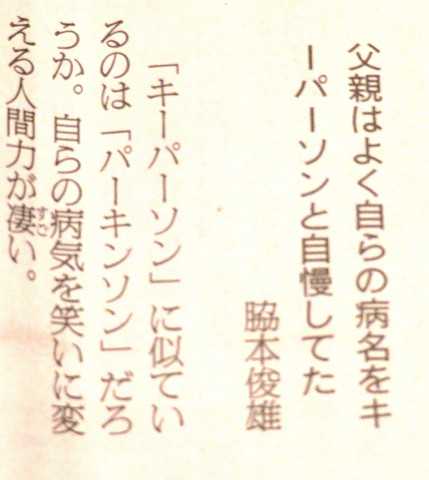 父親はよく自らの病名をキ
ーパーソンと自慢してた
脇本俊雄
「キーパーソン」に似てい
るのは「パーキンソン」だろ
うか。自らの病気を笑いに変
える人間力が凄すごい。